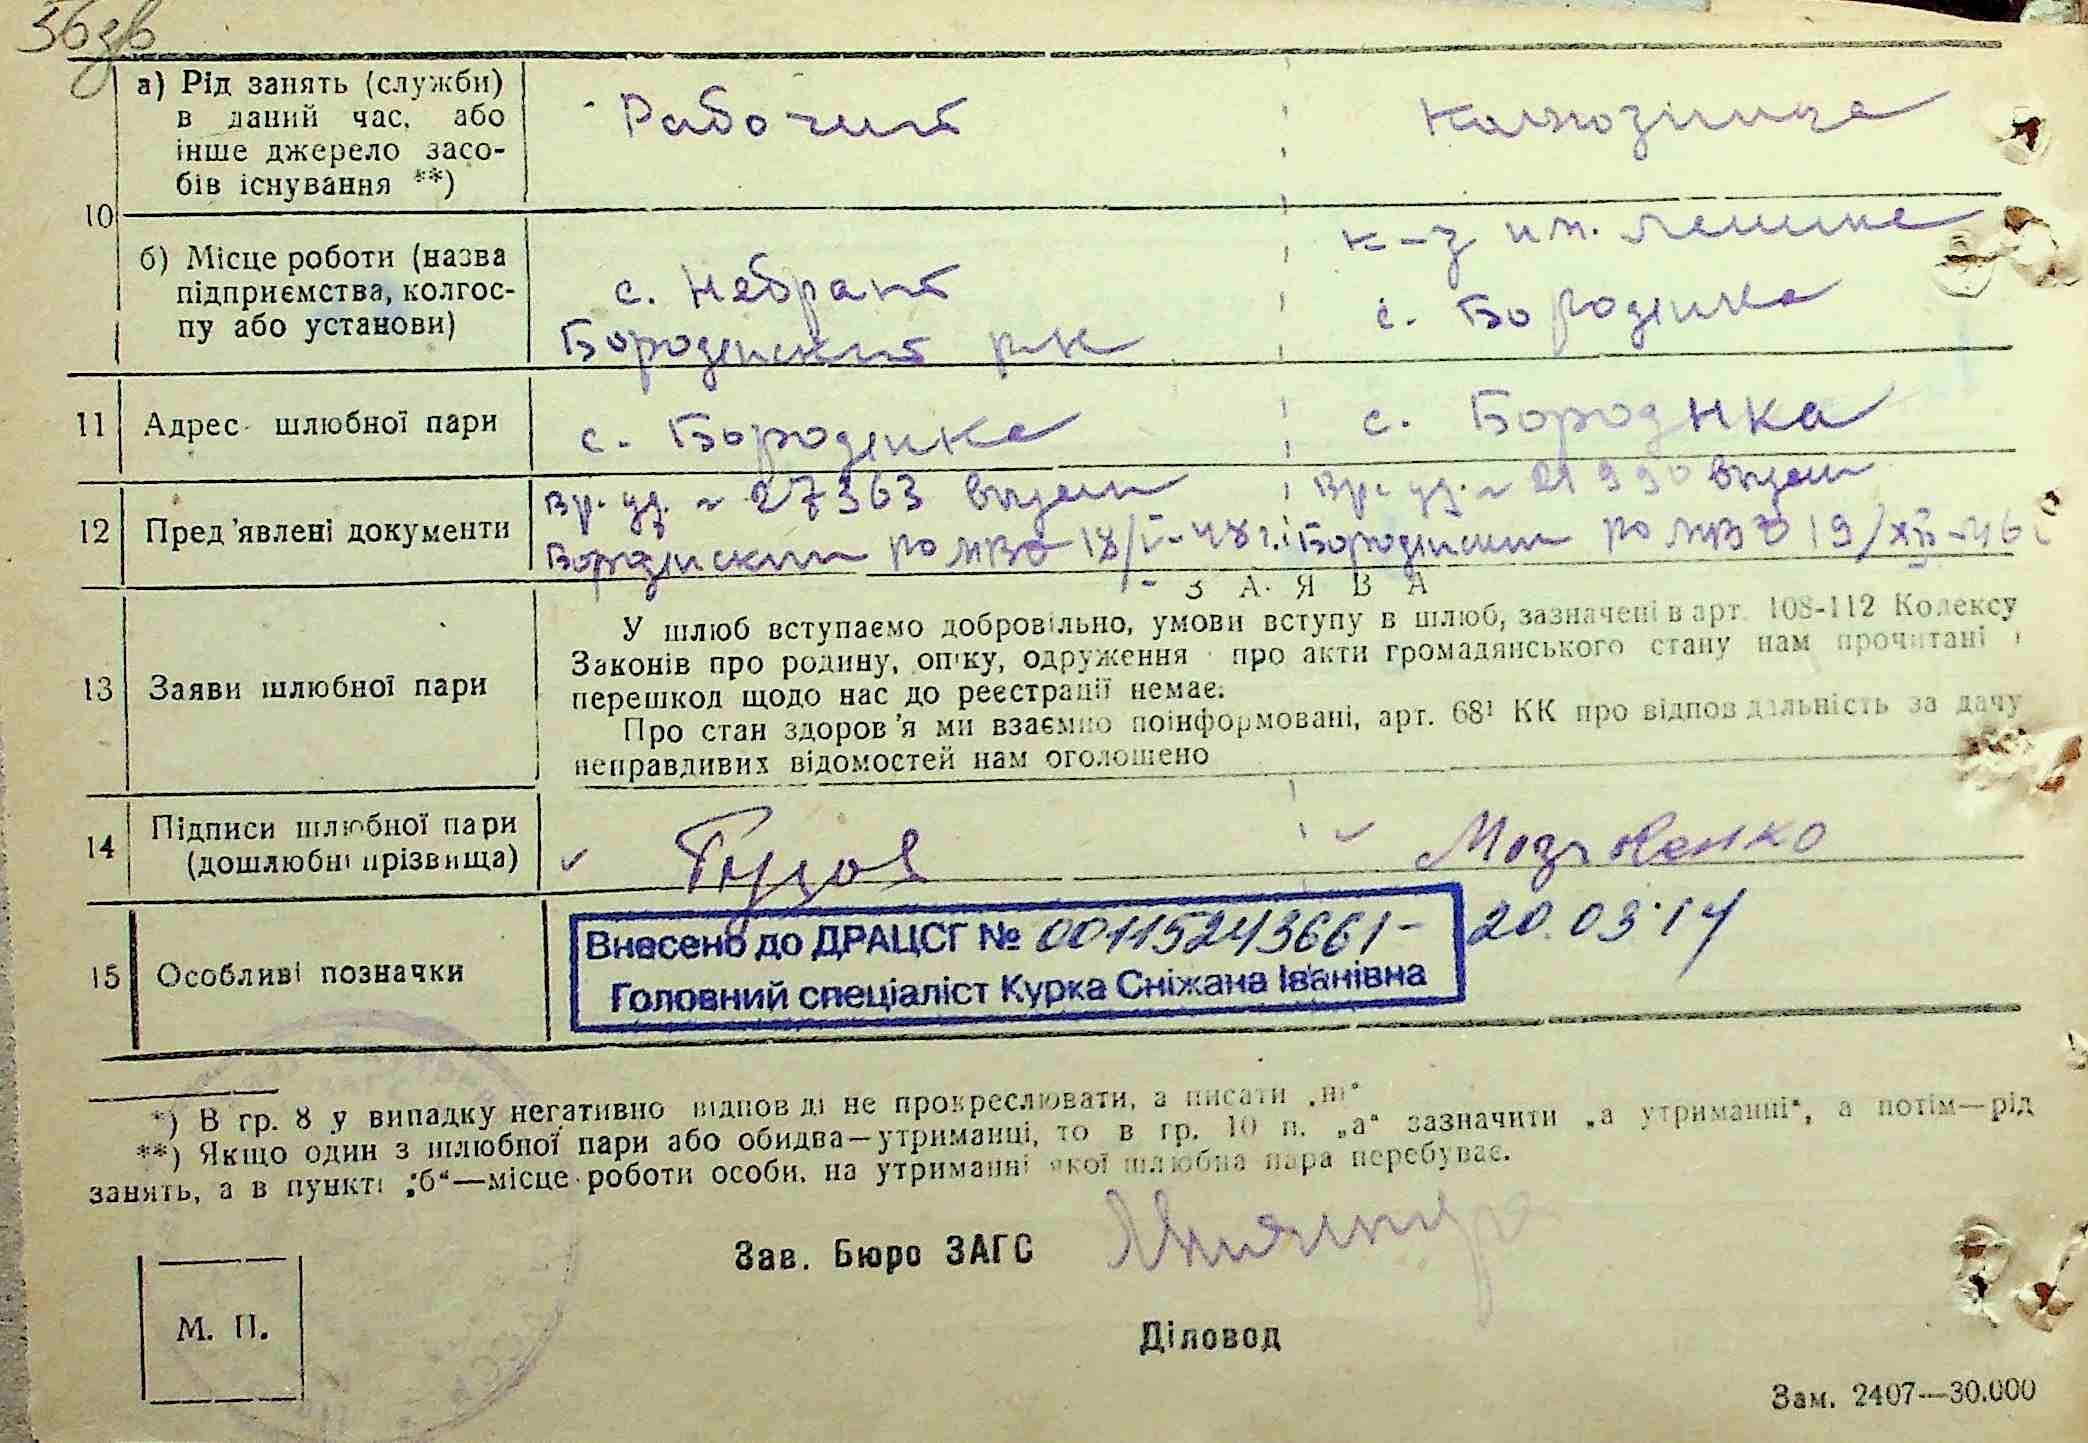 56зв
а) Рід занять (служби) в даний час, або інше джерело засобів існування **)
Рабочий
Колхозница
10
б) Місце роботи (назва підприємства, колгоспу або установи)
с. Небрат
Бородянский рк
к-з им. Ленина
с. Бородянка
11 Адрес шлюбної пари
с. Бородянка
с. Бородянка
12 Пред'явлені документи
Вр. уд. 27363 выдан
Бородянским РОМВД 18/ -48 г.
Вр. уд. 21990 выдан
Бородянским РОМВД 19/XII-46
ЗАЯВА
13 Заяви шлюбної пари
У шлюб вступаємо добровільно, умови вступу в шлюб, зазначені в арт. 108-112 Кодексу
Законів про родину, опіку, одруження про акти громадянського стану нам прочитані і
перешкод щодо нас до реєстрації немає.
Про стан здоров'я ми взаємно поінформовані, арт. 68¹ КК про відповідальність за дачу
неправдивих відомостей нам оголошено
14 Підписи шлюбної пари (дошлюбні прізвища)
15 Особливі позначки
Внесено до ДРАЦСГ № 00115243661- 20.03.14
Головний спеціаліст Курка Сніжана Іванівна
*) В гр. 8 у випадку негативно відповіді не прокреслювати, а писати „ні“
**) Якщо один з шлюбної пари або обидва—утриманці, то в гр. 10 п. „а“ зазначити „а утриманні“, а потім—рід
занять, а в пункті „б“—місце роботи особи, на утриманні якої шлюбна пара перебуває.
Зав. Бюро ЗАГС
М. П.
Діловод
Зам. 2407—30.000